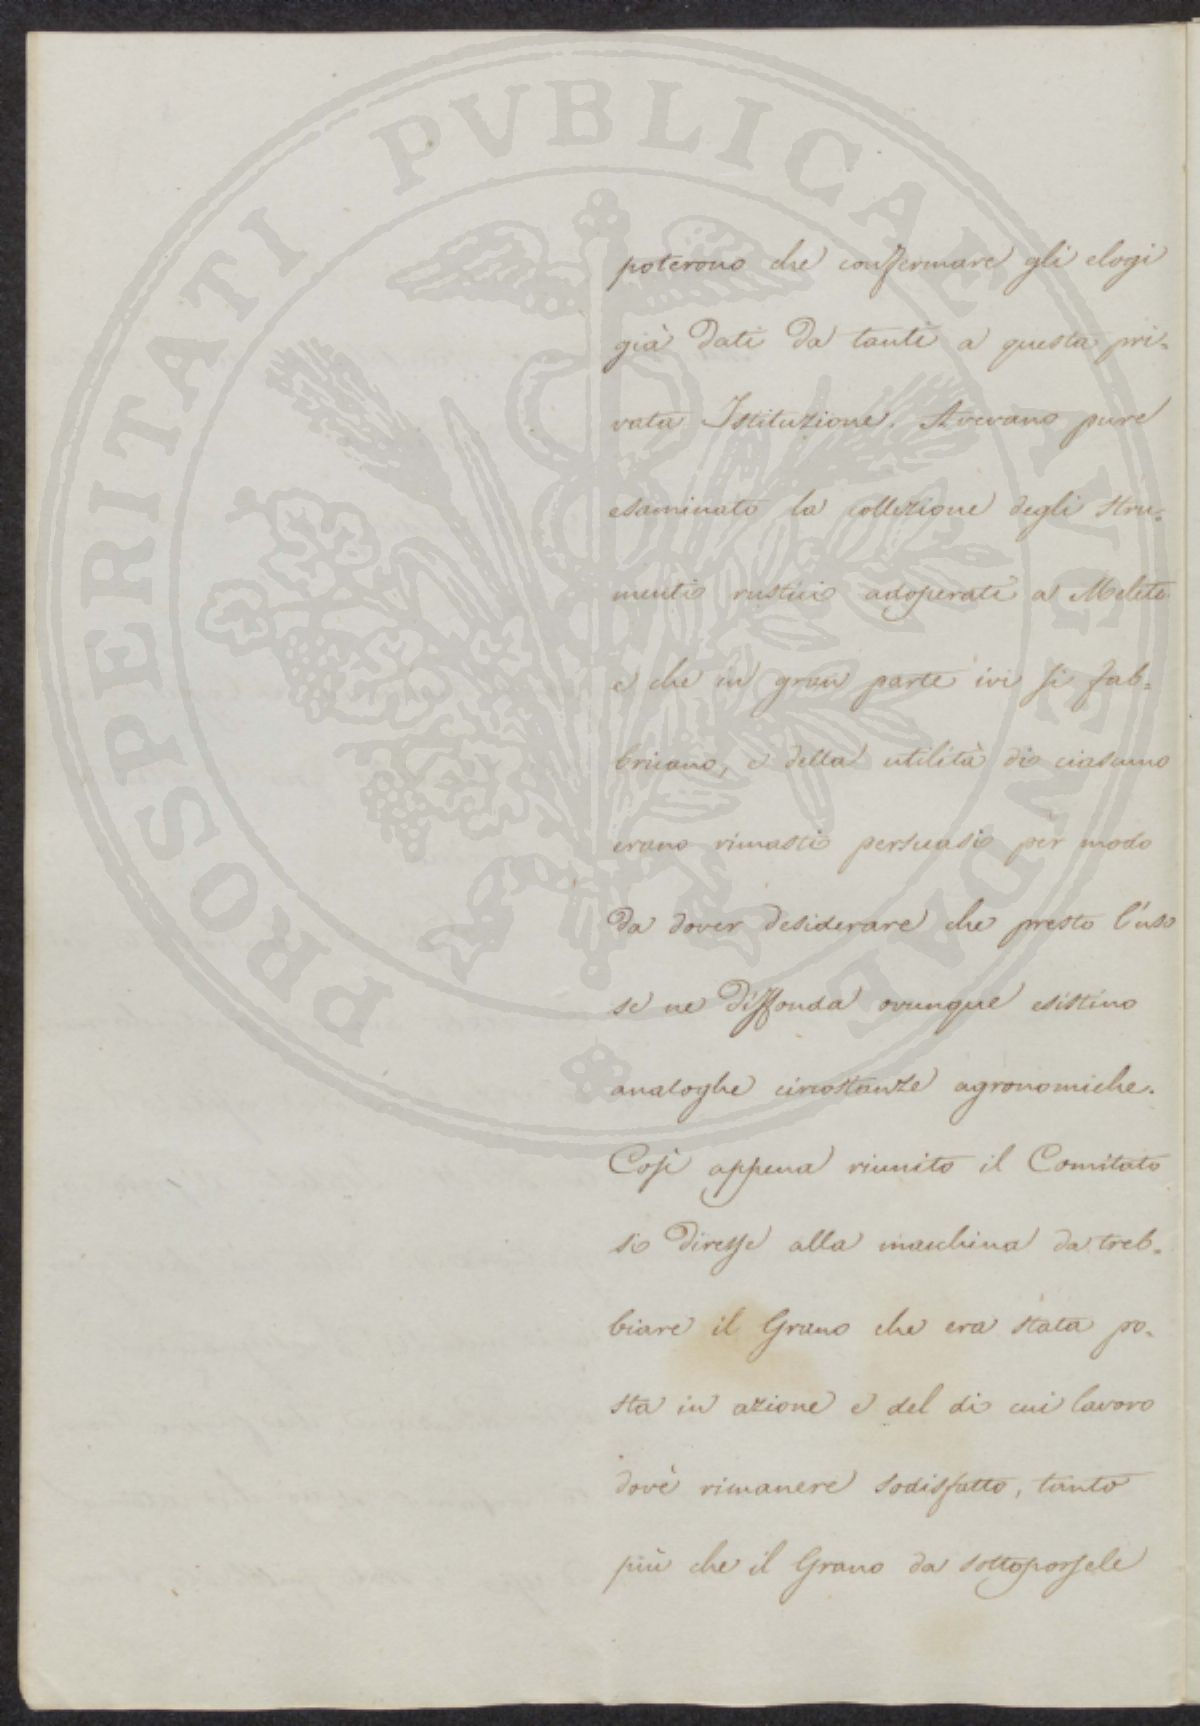 PROSPERITATI PVBLICAE AVGENDAE
poterono che confermare gli elogi
già dati da tanti a questa pri=
vata Istituzione. Avevano pure
esaminato la collezione degli stru=
menti rustici adoperati a Meleto
e che in gran parte ivi si fab=
bricano, e della utilità di ciascuno
erano rimasti persuasi per modo
da dover desiderare che presto l'uso
se ne diffonda ovunque esistino
analoghe circostanze agronomiche.
Così appena riunito il Comitato
si diresse alla macchina da treb=
biare il Grano che era stata po=
sta in azione e del di cui lavoro
dovè rimanere sodisfatto, tanto
più che il Grano da sottoporsele